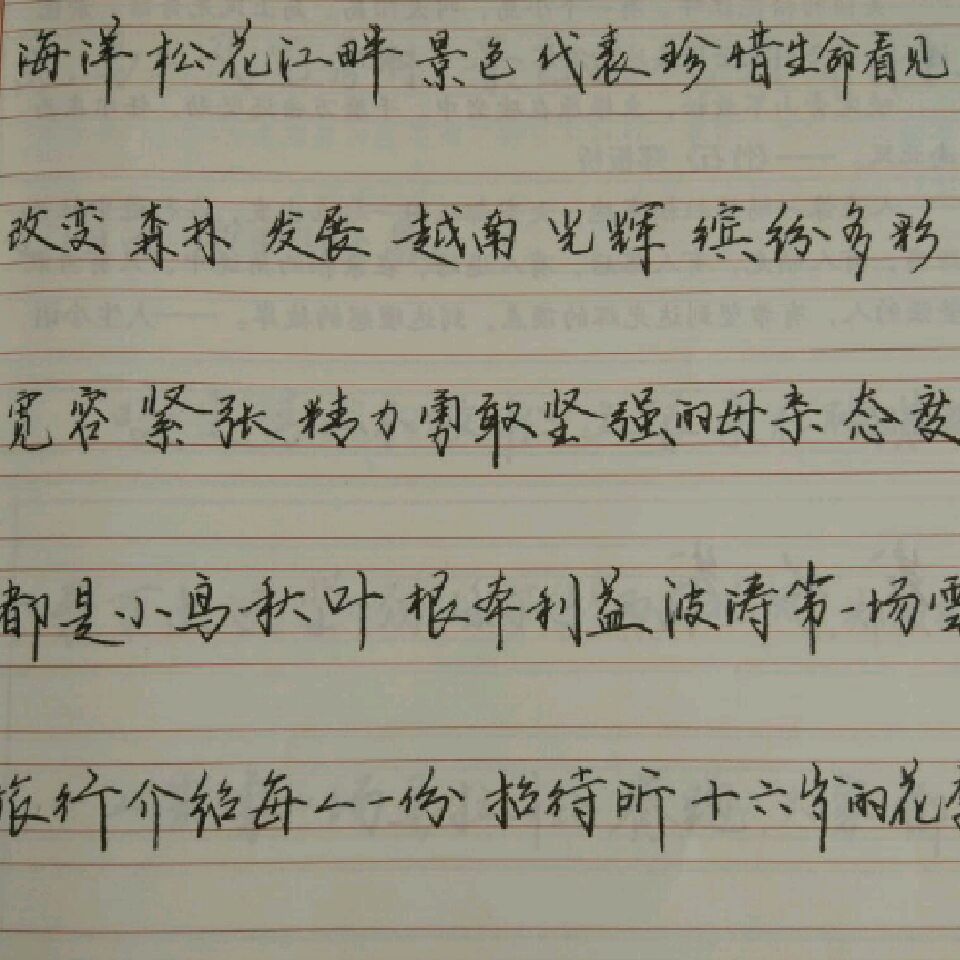 海洋 松花江畔 景色 代表 珍惜生命看见
改变 森林 发展 越南 光辉 缤纷多彩
宽容 紧张 精力 勇敢坚强的母亲 态度
都是小鸟 秋叶 根本利益 波涛 第一场雪
旅行 介绍每人一份 招待所 十六岁的花季